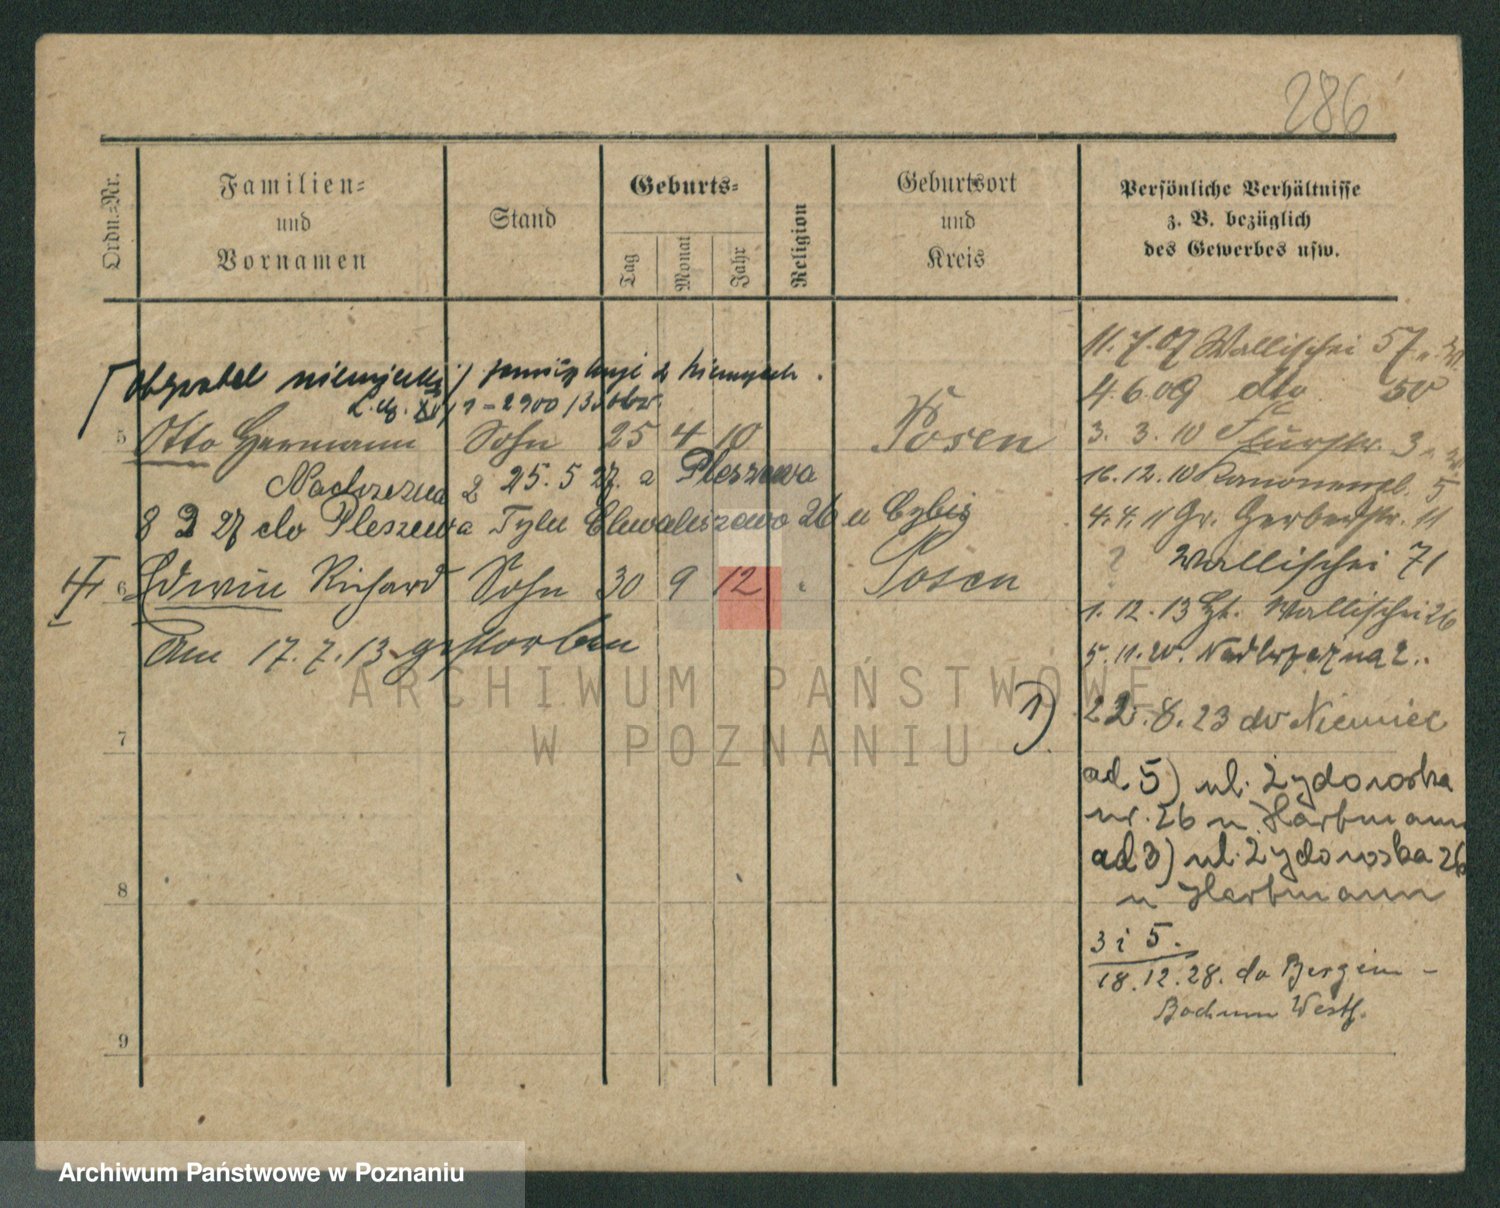 286
Ordn.-Nr.
Familien-
und
Vornamen
Stand
Geburts-
Tag
Monat
Jahr
Religion
Geburtsort
und
Kreis
Persönliche Verhältnisse
z. B. bezüglich
des Gewerbes usw.
obywatel niemiecki
5 Otto Hermann Sohn 25 4 10 Posen
Nadrzeczna 2 25. 5 27. a Pleszewa
8 2 27 do Pleszewa Chwaliszewo 26 u Cybis
6 Edwin Richard Sohn 30 9 12 Posen
Am 17. 7. 13 gestorben
7
8
9
11. 7. 07 Wallischei 57
4. 6. 09 dto 50
3. 3. 10 Flurstr. 3
16. 12. 10 Kanonenpl. 5
4. 4. 11 Gr. Gerberstr. 11
? Wallischei 71
1. 12. 13 Wallischei 26
5. 11. 20. Nadrzeczna 2.
1) 22. 8. 23 do Niemiec
ad 5) ul. Żydowska
nr. 26 u Hartmann
ad 3) ul. Żydowska 26
u Hartmann
3 i 5.
18. 12. 28. do Bergen -
Bochum Westf.
ARCHIWUM PAŃSTWOWE
W POZNANIU
Archiwum Państwowe w Poznaniu